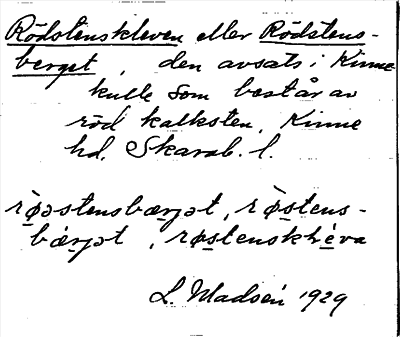 Rödstenskleven eller Rödstens-
berget, den avsats i Kinne
kulle som består av
röd kalksten, Kinne
hd, Skarab. l.
røstensbærjət, røstens-
bærjət, røstensklréva
L. Madsén 1929